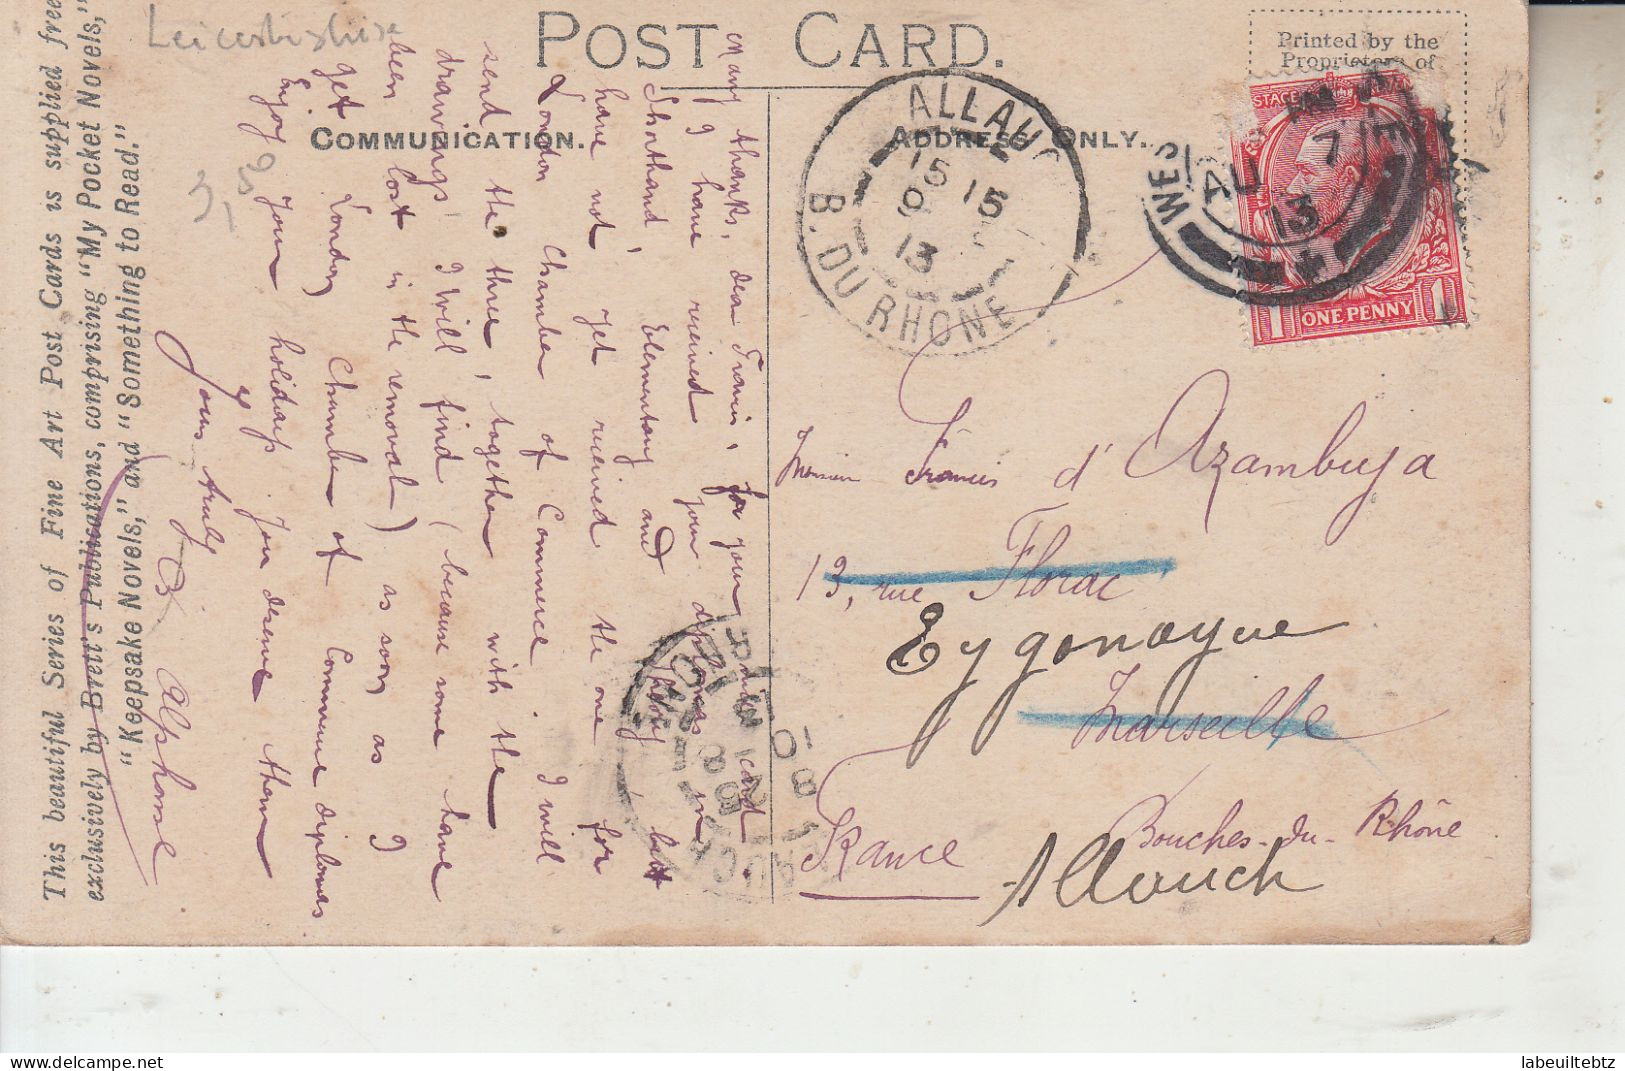 Leicestershire
POST CARD.
Printed by the
Proprietors of
COMMUNICATION.
ADDRESS ONLY.
3,50
This beautiful Series of Fine Art Post Cards is supplied free
exclusively by Brett's Publications, comprising "My Pocket Novels,"
"Keepsake Novels," and "Something to Read."
many thanks, dear Francis, for your card.
I have received your diplomas in
Shorthand, Elementary and Theory but
have not yet received the one for
London Chamber of Commerce. I will
send the three, together with the
drawings I will find (because some have
been lost in the removal) as soon as I
get London Chamber of Commerce diplomas
Enjoy your holidays you deserve them
Yours truly
Alphonse
ALLAUCH
15
15
9
13
B. DU RHONE
AU 7
13
ONE PENNY
1 1
Monsieur Francis d'Azambuja
13, rue Florac
Eygonayue
Marseille
Bouches-du-Rhône
France
Allauch
labeuiltebtz